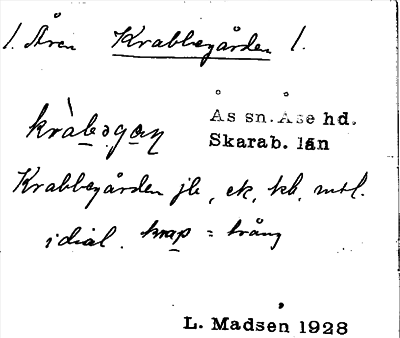 1. Åren Krabbegården 1.
Ås sn. Åse hd.
kràbəgan
Skarab. län
Krabbegården jb, ek, kb, mtl.
i dial. krap = trång
L. Madsen 1928